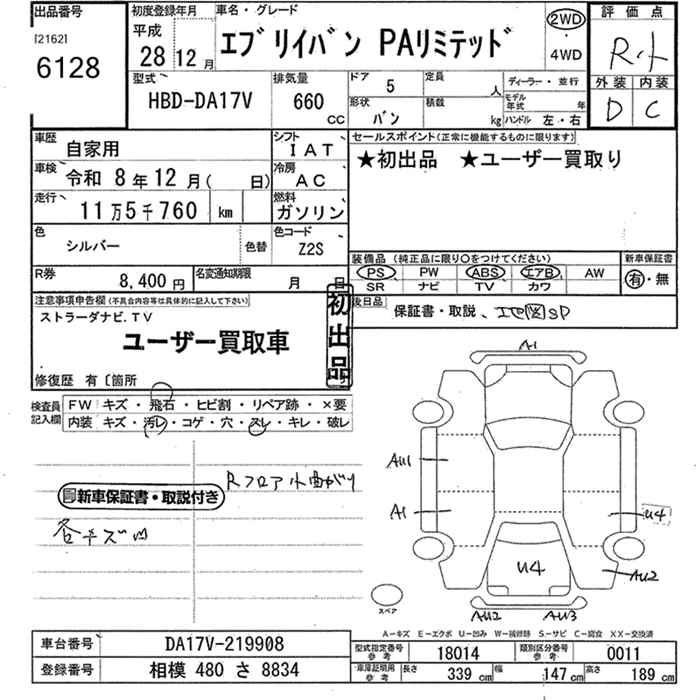 出品番号
[2162]
6128
初度登録年月
平成
28 12 月
車名・グレード
エブリイバン PAリミテッド
2WD
・
4WD
評価点
外装 内装
D C
型式
HBD-DA17V
排気量
660 CC
ドア 5
定員 人
形状 バン
積載 kg
ディーラー・並行
モデル年式 年
ハンドル 左・右
車歴 自家用
シフト IAT
セールスポイント(正常に機能するものに限ります)
★初出品 ★ユーザー買取り
車検 令和 8 年 12 月 ( 日)
冷房 AC
走行 11 万 5 千 760 km
燃料 ガソリン
色 シルバー 色替
色コード Z2S
装備品 (純正品に限り○をつけてください)
新車保証書
PS PW ABS エアB AW
SR ナビ TV カワ
有・無
R券 8,400 円
名変通知期限 月 日
注意事項申告欄(不具合内容等は具体的に記入して下さい)
ストラーダナビ.TV
ユーザー買取車
修復歴 有〔箇所
初出品
後日品
保証書・取説、
検査員記入欄
FW キズ・飛石・ヒビ割・リペア跡・×要
内装 キズ・汚レ・コゲ・穴・スレ・キレ・破レ
Rフロア小曲がり
新車保証書・取説付き
各キズ凹
A1
AU1
A1
U4
U4
AU2
AU2 AU3
スペア
A-キズ E-エクボ U-凹み W-補修跡 S-サビ C-腐食 XX-交換済
車台番号 DA17V-219908
登録番号 相模 480 さ 8834
型式指定番号 参考 18014
類別区分番号 参考 0011
車庫証明用 参考
長さ 339 cm
幅 147 cm
高さ 189 cm